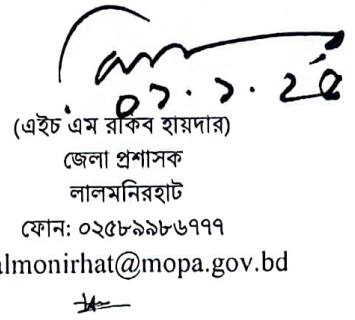 ০১.১.২৫
(এইচ এম রকিব হায়দার)
জেলা প্রশাসক
লালমনিরহাট
ফোন: ০২৫৮৯৯৮৬৭৭৭
almonirhat@mopa.gov.bd